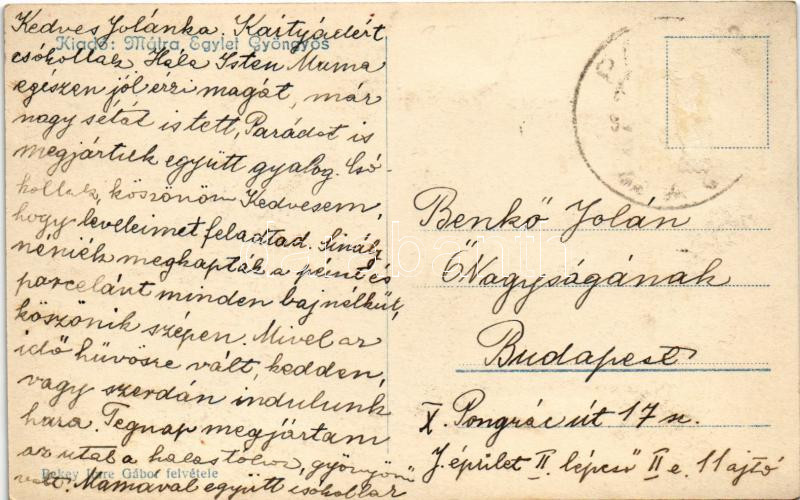 Kedves Jolánka. Kártyádért
Kiadó: Mátra Egylet Gyöngyös
csókollak Hála Isten Muma
egészen jól érzi magát, már
nagy sétát is tett, Parádot is
megjártuk együtt gyalog. Csó-
kollak, köszönöm Kedvesem,
hogy leveleimet feladtad.
néniék megkapták a pénzt és
parcelánt minden bajnélkül,
köszönik szépen. Mivel az
idő hűvösre vált, kedden,
vagy szerdán indulunk
haza. Tegnap megjártam
az utat a halastóhoz, gyönyörű
Bekey Imre Gábor felvétele
volt. Mamával együtt csókollak
Benkő Jolán
Ő Nagyságának
Budapest
X. Pongrác út 17 sz.
J. épület II. lépcső II e. 11 ajtó